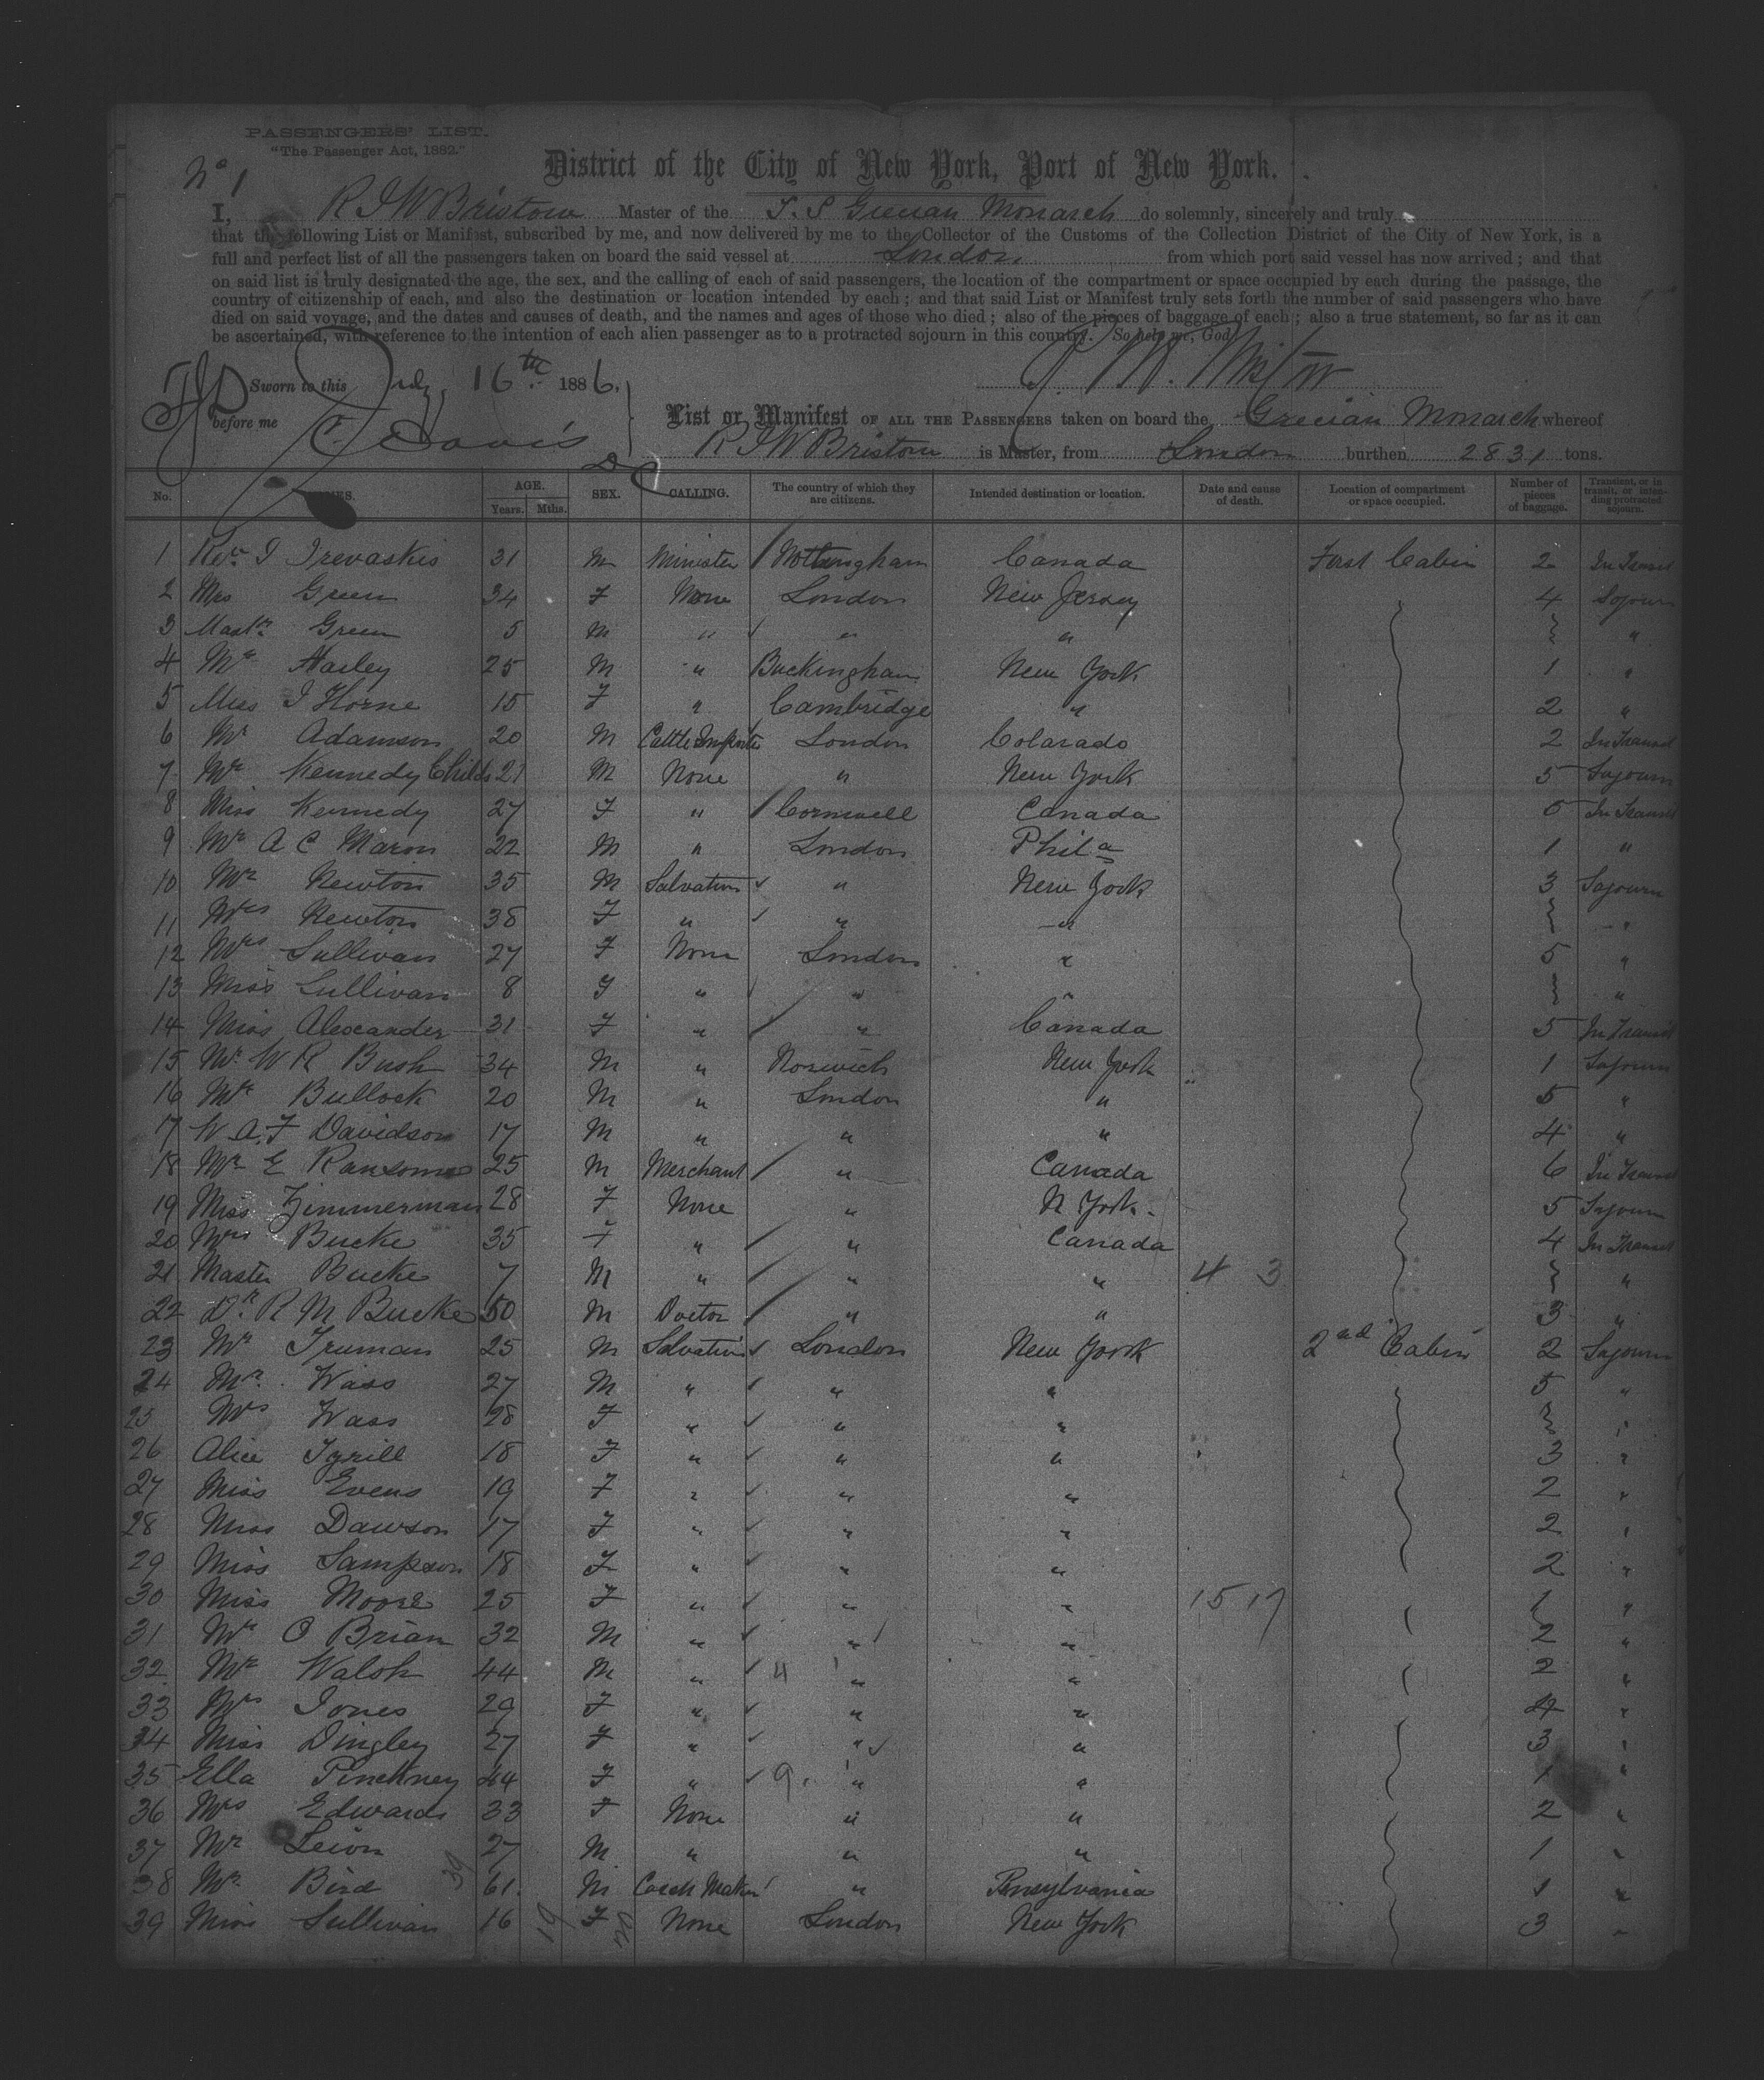 PASSENGERS' LIST.
"The Passenger Act, 1882."
No 1
District of the City of New York, Port of New York.
I, R J W Bristow Master of the S. S Grecian Monarch do solemnly, sincerely and truly
that the following List or Manifest, subscribed by me, and now delivered by me to the Collector of the Customs of the Collection District of the City of New York, is a
full and perfect list of all the passengers taken on board the said vessel at London from which port said vessel has now arrived; and that
on said list is truly designated the age, the sex, and the calling of each of said passengers, the location of the compartment or space occupied by each during the passage, the
country of citizenship of each, and also the destination or location intended by each; and that said List or Manifest truly sets forth the number of said passengers who have
died on said voyage, and the dates and causes of death, and the names and ages of those who died; also of the pieces of baggage of each; also a true statement, so far as it can
be ascertained, with reference to the intention of each alien passenger as to a protracted sojourn in this country. So help me, God
Sworn to this July 16th 1886.
before me C Davis
List or Manifest OF ALL THE PASSENGERS taken on board the Grecian Monarch whereof
R J W Bristow is Master, from London burthen 2831 tons.
No. NAMES. AGE. Years. Mths. SEX. CALLING. The country of which they are citizens. Intended destination or location. Date and cause of death. Location of compartment or space occupied. Number of pieces of baggage. Transient, or in transit, or intending protracted sojourn.
1 Revd I Trevaskis 31 M Minister Nottingham Canada First Cabin 2 In Transit
2 Mrs Green 34 F None London New Jersey 4 Sojourn
3 Mastr Green 5 M " " " "
4 Mr Hasley 25 M " Buckingham New York 1 "
5 Miss I Horne 15 F " Cambridge " 2 "
6 Mr Adamson 20 M Cattle Importer London Colarado 2 In Transit
7 Mr Kennedy Childs 21 M None " New York 5 Sojourn
8 Miss Kennedy 27 F " Cornwell Canada 0 In Transit
9 Mr A C Maron 22 M " London Phila 1 "
10 Mr Newton 35 M Salvation " New York 3 Sojourn
11 Mrs Newton 38 F " " " "
12 Mrs Sullivan 27 F None London " 5 "
13 Miss Sullivan 8 F " " " "
14 Miss Alexander 31 F " " Canada 5 In Transit
15 Mr W R Bush 34 M " Norwich New York 1 Sojourn
16 Mr Bullock 20 M " London " 5 "
17 W A. F Davidson 17 M " " " 4 "
18 Mr E Ransome 25 M Merchant " Canada 6 In Transit
19 Miss Zimmerman 28 F None " N York. 5 Sojourn
20 Mrs Bucke 35 F " " Canada 4 In Transit
21 Master Bucke 7 M " " " 4 3 "
22 Dr. R M Bucke 50 M Doctor " " 3 "
23 Mr Truman 25 M Salvation London New York 2nd Cabin 2 Sojourn
24 Mr. Wass 27 M " " " 5 "
25 Mrs Wass 28 F " " " "
26 Alice Tyrill 18 F " " " 3 "
27 Miss Evens 19 F " " " 2 "
28 Miss Dawson 17 F " " " 2 "
29 Miss Sampson 18 F " " " 2 "
30 Miss Moore 25 F " " " 15 17 1 "
31 Mr O Brian 32 M " " " 2 "
32 Mr Walsh 44 M " 4 " " 2 "
33 Mrs Jones 29 F " " " 4 "
34 Miss Dingley 27 F " " " 3 "
35 Ella Pinckney 44 F " 9. " " 1 "
36 Mrs Edwards 33 F None " " 2 "
37 Mr Leion 27 M " " " 1 "
38 Mr. Bird 61. M Coach Maker " Pensylvania 1 "
39 Miss Sullivan 16 F None London New York 3 "
39 19 20